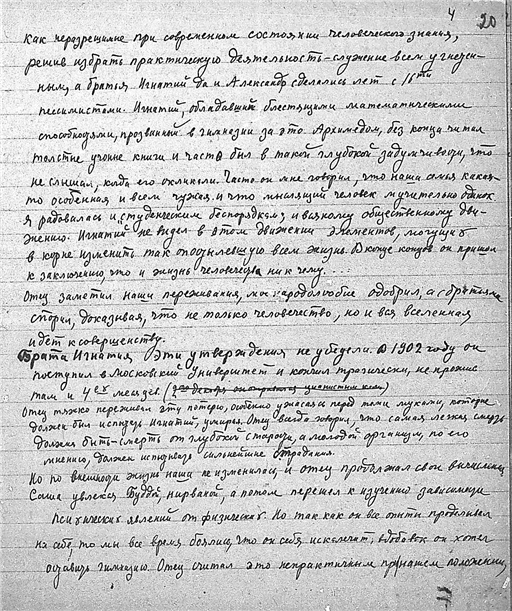 4
20
как неразрешимые при современном состоянии человеческого знания,
решив избрать практическую деятельность – служение всем угнетен-
ным, а братья Игнатий да и Александр сделались лет с 16ти
пессимистами. Игнатий, обладавший блестящими математическими
способностями, прозванный в гимназии за это Архимедом, без конца читал
толстые ученые книги и часто был в такой глубокой задумчивости, что
не слышал, когда его окликали. Часто он мне говорил, что наша семья какая-
то особенная и всем чужая, и что мыслящий человек мучительно одинок
Я радовалась и студенческим беспорядкам и всякому общественному дви-
жению. Игнатий не видел в этом движении элементов, могущих
в корне изменить так опостылевшую всем жизнь. В конце концов он пришел
к заключению, что и жизнь человечества ни к чему....
Отец заметил наши переживания, мое народолюбие одобрил, а с братьями
спорил, доказывая, что не только человечество, но и вся вселенная
идет к совершенству.
Брата Игнатия эти утверждения не убедили. В 1902 году он
поступил в Московский Университет и кончил трагически, не прожив
там и 4ех месяцев. (
Отец тяжко переживал эту потерю, особенно ужасаясь перед теми муками, которые
должен был испытать Игнатий, умирая. Отец всегда говорил, что самая легкая смерть
должна быть – смерть от глубокой старости, а молодой организм, по его
мнению, должен испытывать сильнейшие страдания.
Но по внешности жизнь наша не изменилась, и отец продолжал свои вычисления
Саша увлекся Буддой, нирваной, а потом перешел к изучению зависимости
психических явлений от физических. Но так как он все опыты проделывал
на себе, то мы все время боялись, что он себя искалечит, вдобавок он хотел
оставить гимназию. Отец считал это непрактичным при нашем положении,